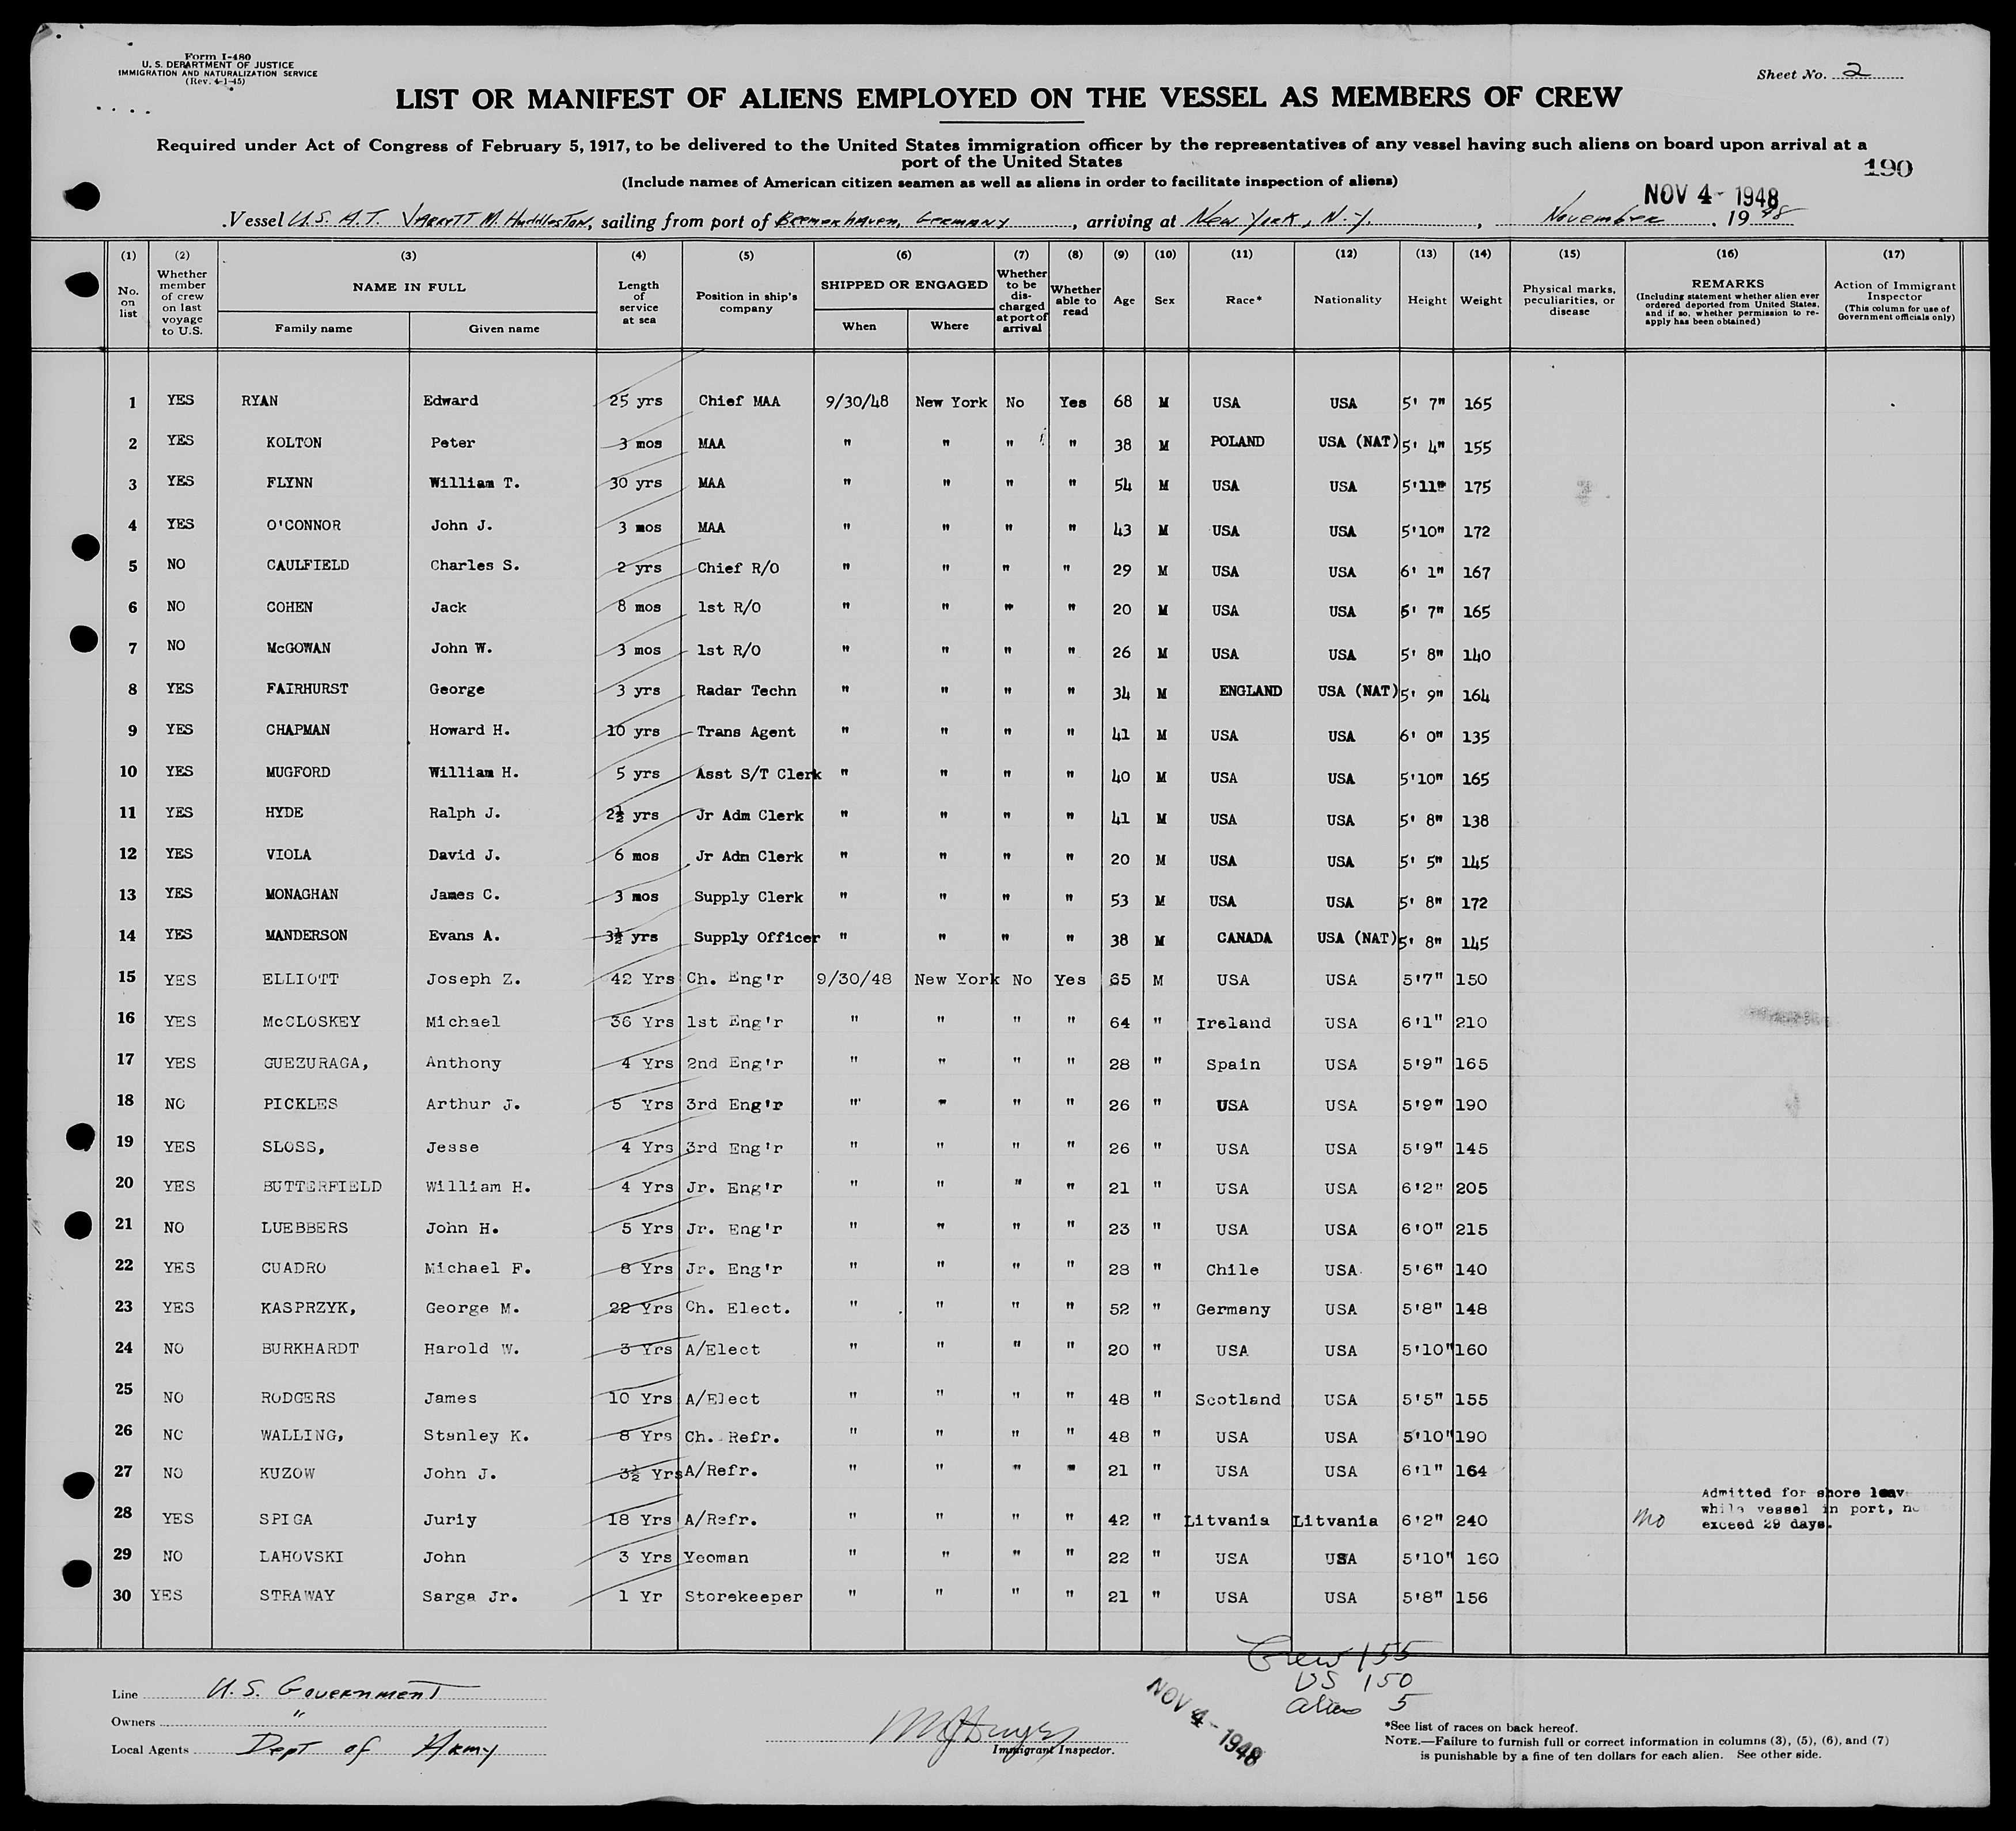 Form I-480
U. S. DEPARTMENT OF JUSTICE
IMMIGRATION AND NATURALIZATION SERVICE
(Rev. 4-1-45)
Sheet No. 2
LIST OR MANIFEST OF ALIENS EMPLOYED ON THE VESSEL AS MEMBERS OF CREW
Required under Act of Congress of February 5, 1917, to be delivered to the United States immigration officer by the representatives of any vessel having such aliens on board upon arrival at a
port of the United States
190
(Include names of American citizen seamen as well as aliens in order to facilitate inspection of aliens)
NOV 4 - 1948
Vessel U.S. A.T. Jarrett M. Huddleston, sailing from port of Bremerhaven, Germany, arriving at New York, N.Y., November, 1948
(1) (2) (3) (4) (5) (6) (7) (8) (9) (10) (11) (12) (13) (14) (15) (16) (17)
No. on list
Whether member of crew on last voyage to U.S.
NAME IN FULL
Family name Given name
Length of service at sea
Position in ship's company
SHIPPED OR ENGAGED
When Where
Whether to be discharged at port of arrival
Whether able to read
Age
Sex
Race*
Nationality
Height
Weight
Physical marks, peculiarities, or disease
REMARKS
(Including statement whether alien ever ordered deported from United States, and if so, whether permission to re-apply has been obtained)
Action of Immigrant Inspector
(This column for use of Government officials only)
1 YES RYAN Edward 25 yrs Chief MAA 9/30/48 New York No Yes 68 M USA USA 5' 7" 165
2 YES KOLTON Peter 3 mos MAA " " " " 38 M POLAND USA (NAT) 5' 4" 155
3 YES FLYNN William T. 30 yrs MAA " " " " 54 M USA USA 5'11" 175
4 YES O'CONNOR John J. 3 mos MAA " " " " 43 M USA USA 5'10" 172
5 NO CAULFIELD Charles S. 2 yrs Chief R/O " " " " 29 M USA USA 6' 1" 167
6 NO COHEN Jack 8 mos 1st R/O " " " " 20 M USA USA 5' 7" 165
7 NO McGOWAN John W. 3 mos 1st R/O " " " " 26 M USA USA 5' 8" 140
8 YES FAIRHURST George 3 yrs Radar Techn " " " " 34 M ENGLAND USA (NAT) 5' 9" 164
9 YES CHAPMAN Howard H. 10 yrs Trans Agent " " " " 41 M USA USA 6' 0" 135
10 YES MUGFORD William H. 5 yrs Asst S/T Clerk " " " " 40 M USA USA 5'10" 165
11 YES HYDE Ralph J. 2½ yrs Jr Adm Clerk " " " " 41 M USA USA 5' 8" 138
12 YES VIOLA David J. 6 mos Jr Adm Clerk " " " " 20 M USA USA 5' 5" 145
13 YES MONAGHAN James C. 3 mos Supply Clerk " " " " 53 M USA USA 5' 8" 172
14 YES MANDERSON Evans A. 3½ yrs Supply Officer " " " " 38 M CANADA USA (NAT) 5' 8" 145
15 YES ELLIOTT Joseph Z. 42 Yrs Ch. Eng'r 9/30/48 New York No Yes 65 M USA USA 5'7" 150
16 YES McCLOSKEY Michael 36 Yrs 1st Eng'r " " " " 64 " Ireland USA 6'1" 210
17 YES GUEZURAGA, Anthony 4 Yrs 2nd Eng'r " " " " 28 " Spain USA 5'9" 165
18 NO PICKLES Arthur J. 5 Yrs 3rd Eng'r " " " " 26 " USA USA 5'9" 190
19 YES SLOSS, Jesse 4 Yrs 3rd Eng'r " " " " 26 " USA USA 5'9" 145
20 YES BUTTERFIELD William H. 4 Yrs Jr. Eng'r " " " " 21 " USA USA 6'2" 205
21 NO LUEBBERS John H. 5 Yrs Jr. Eng'r " " " " 23 " USA USA 6'0" 215
22 YES CUADRO Michael F. 8 Yrs Jr. Eng'r " " " " 28 " Chile USA 5'6" 140
23 YES KASPRZYK, George M. 22 Yrs Ch. Elect. " " " " 52 " Germany USA 5'8" 148
24 NO BURKHARDT Harold W. 3 Yrs A/Elect " " " " 20 " USA USA 5'10" 160
25 NO RODGERS James 10 Yrs A/Elect " " " " 48 " Scotland USA 5'5" 155
26 NO WALLING, Stanley K. 8 Yrs Ch. Refr. " " " " 48 " USA USA 5'10" 190
27 NO KUZOW John J. 3½ Yrs A/Refr. " " " " 21 " USA USA 6'1" 164
28 YES SPIGA Juriy 18 Yrs A/Refr. " " " " 42 " Litvania Litvania 6'2" 240 Admitted for shore leav
while vessel in port, no
exceed 29 days.
29 NO LAHOVSKI John 3 Yrs Yeoman " " " " 22 " USA USA 5'10" 160
30 YES STRAWAY Sarga Jr. 1 Yr Storekeeper " " " " 21 " USA USA 5'8" 156
Crew 155
US 150
alien 5
Line U.S. Government
Owners "
Local Agents Dept of Army
Immigrant Inspector.
NOV 4 - 1948
*See list of races on back hereof.
NOTE.—Failure to furnish full or correct information in columns (3), (5), (6), and (7)
is punishable by a fine of ten dollars for each alien. See other side.